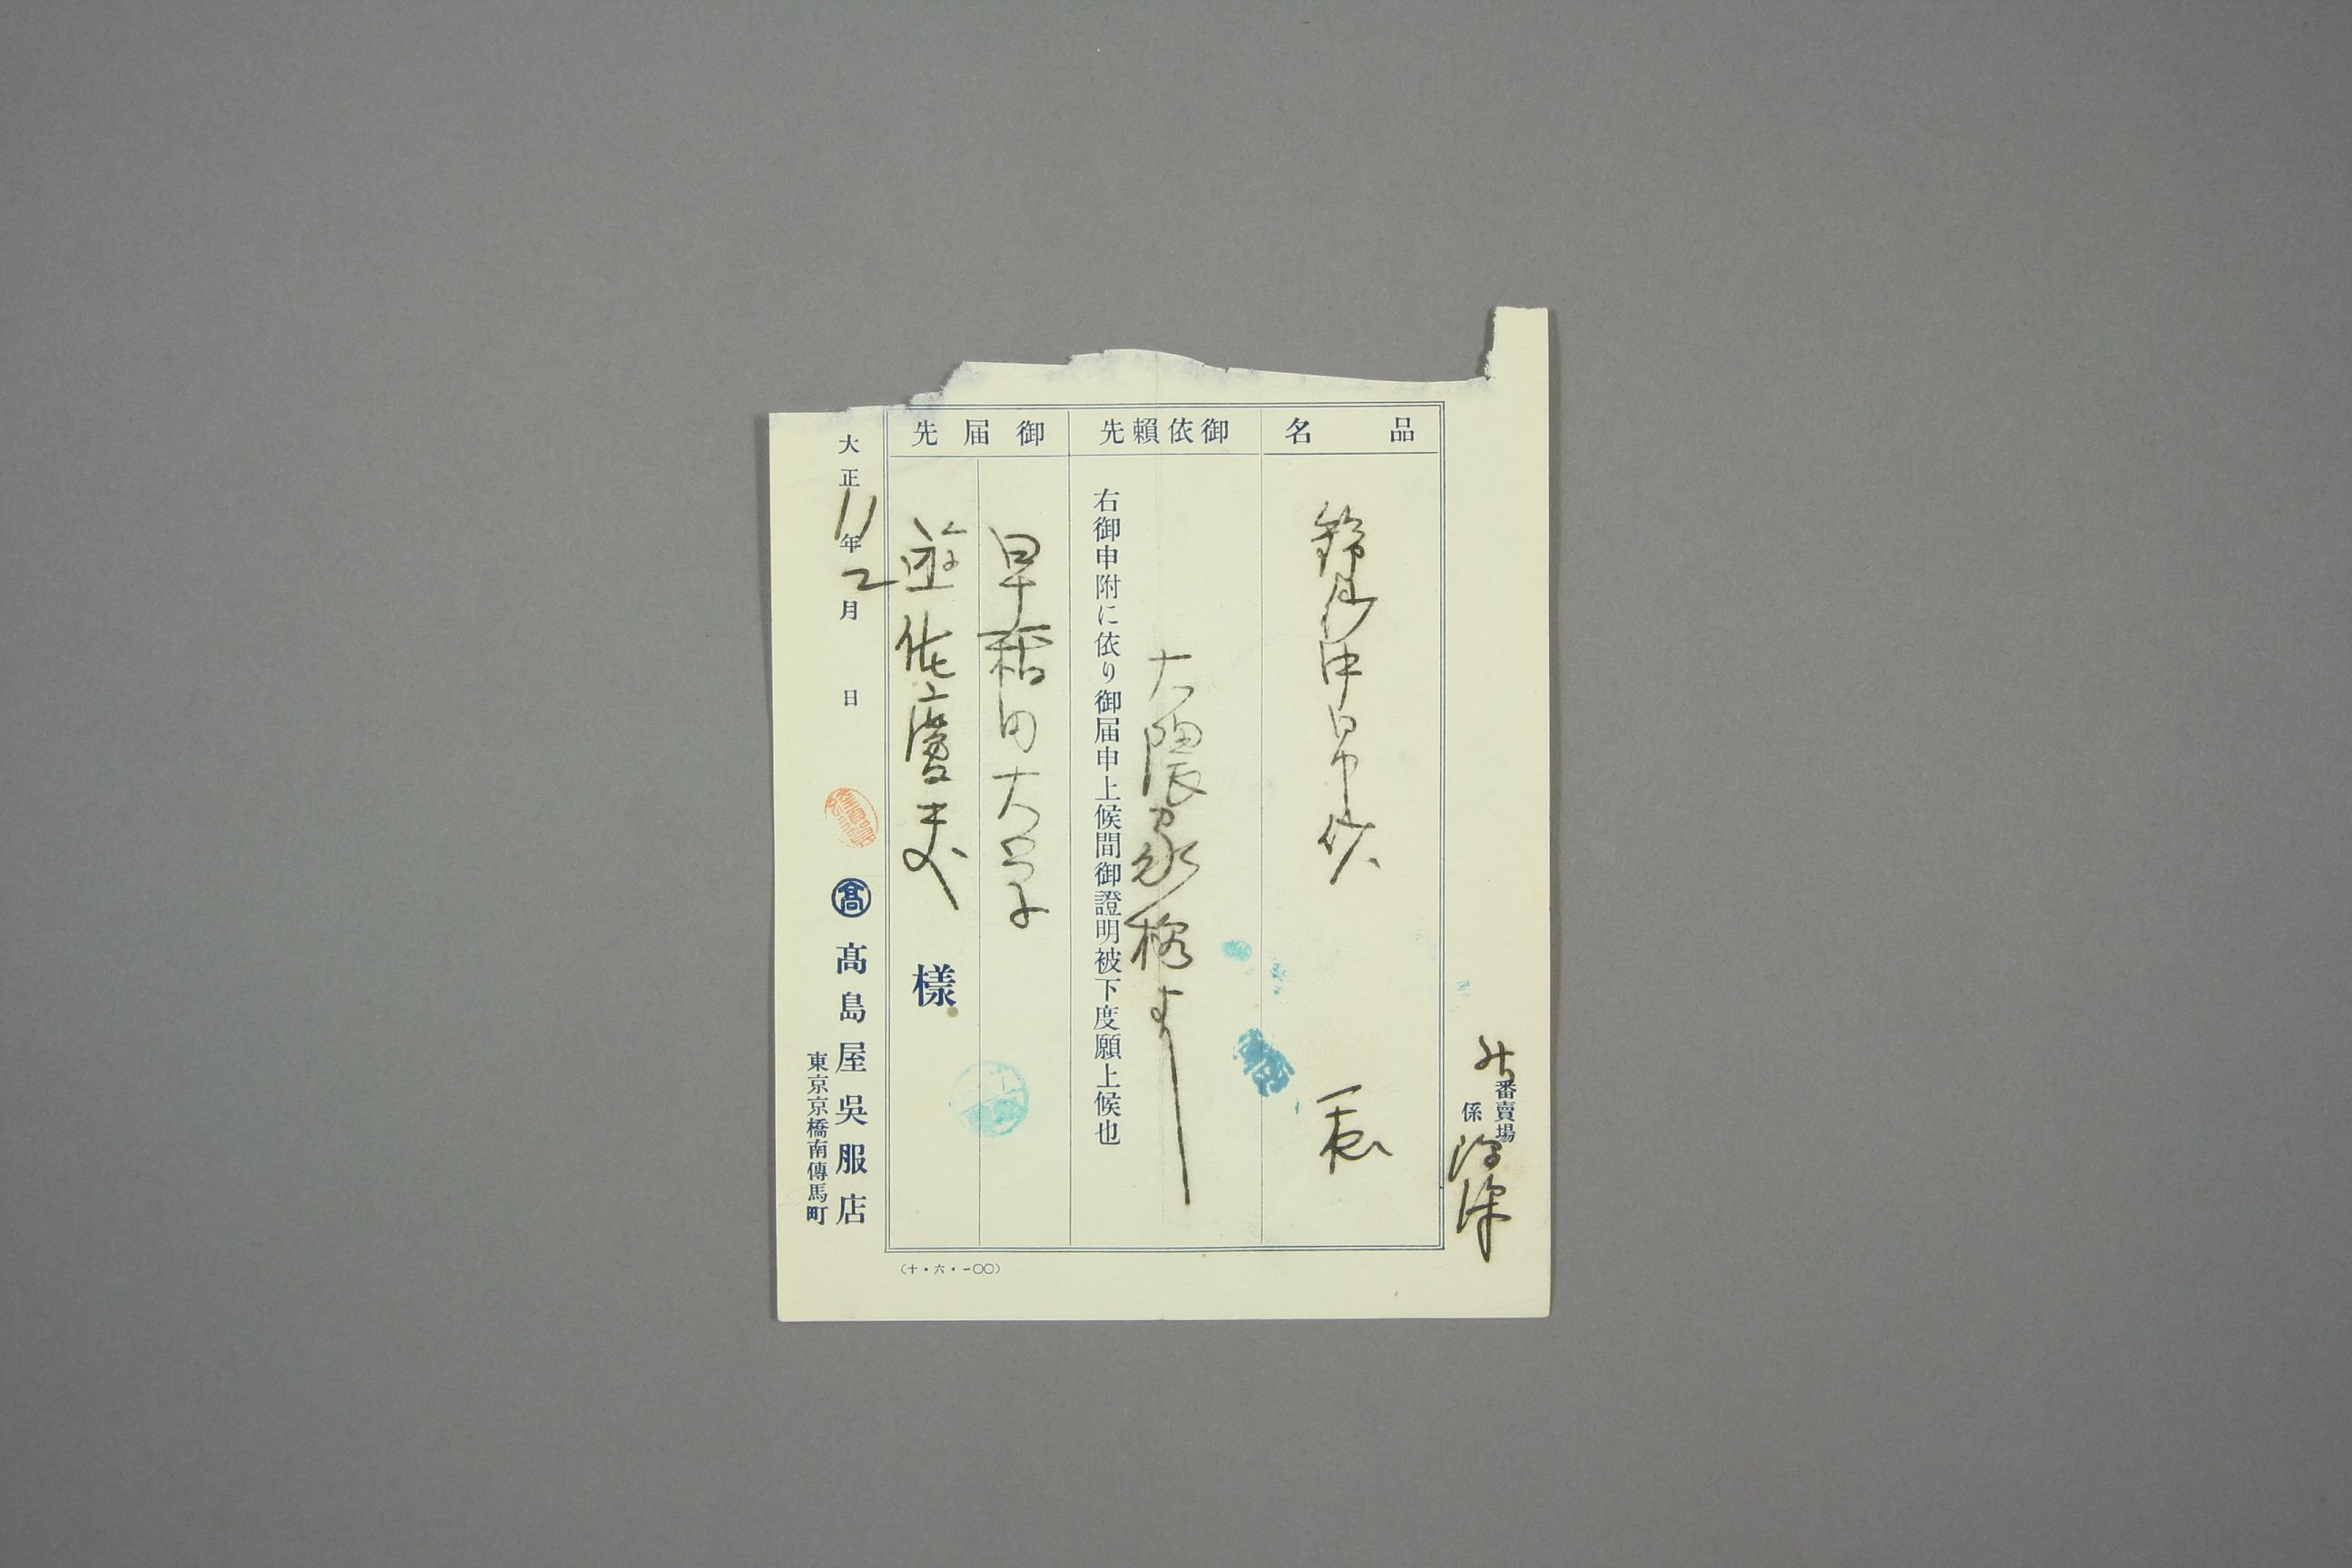 番賣場
係
品名
一表
御依頼先
大隈家様より
右御申附に依り御届申上候間御證明被下度願上候也
御届先
早稲田大学
遊佐慶夫
樣
大正11年2月 日
髙
髙島屋吳服店
東京京橋南傳馬町
(十・六・一〇〇)